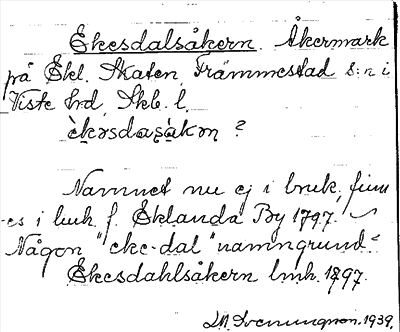 Ekesdalsåkern. Åkermark
på Ekl. Skaten, Främmestad s:n i
Viste hrd, Skb. l.
èkəsdaʂàkəɳ ?
Namnet nu ej i bruk, finn-
es i lmh. f. Eklanda By 1797.
Någon "eke-dal" namngrund?
Ekesdahlsåkern lmh. 1897.
D.M. Svenungsson. 1939.